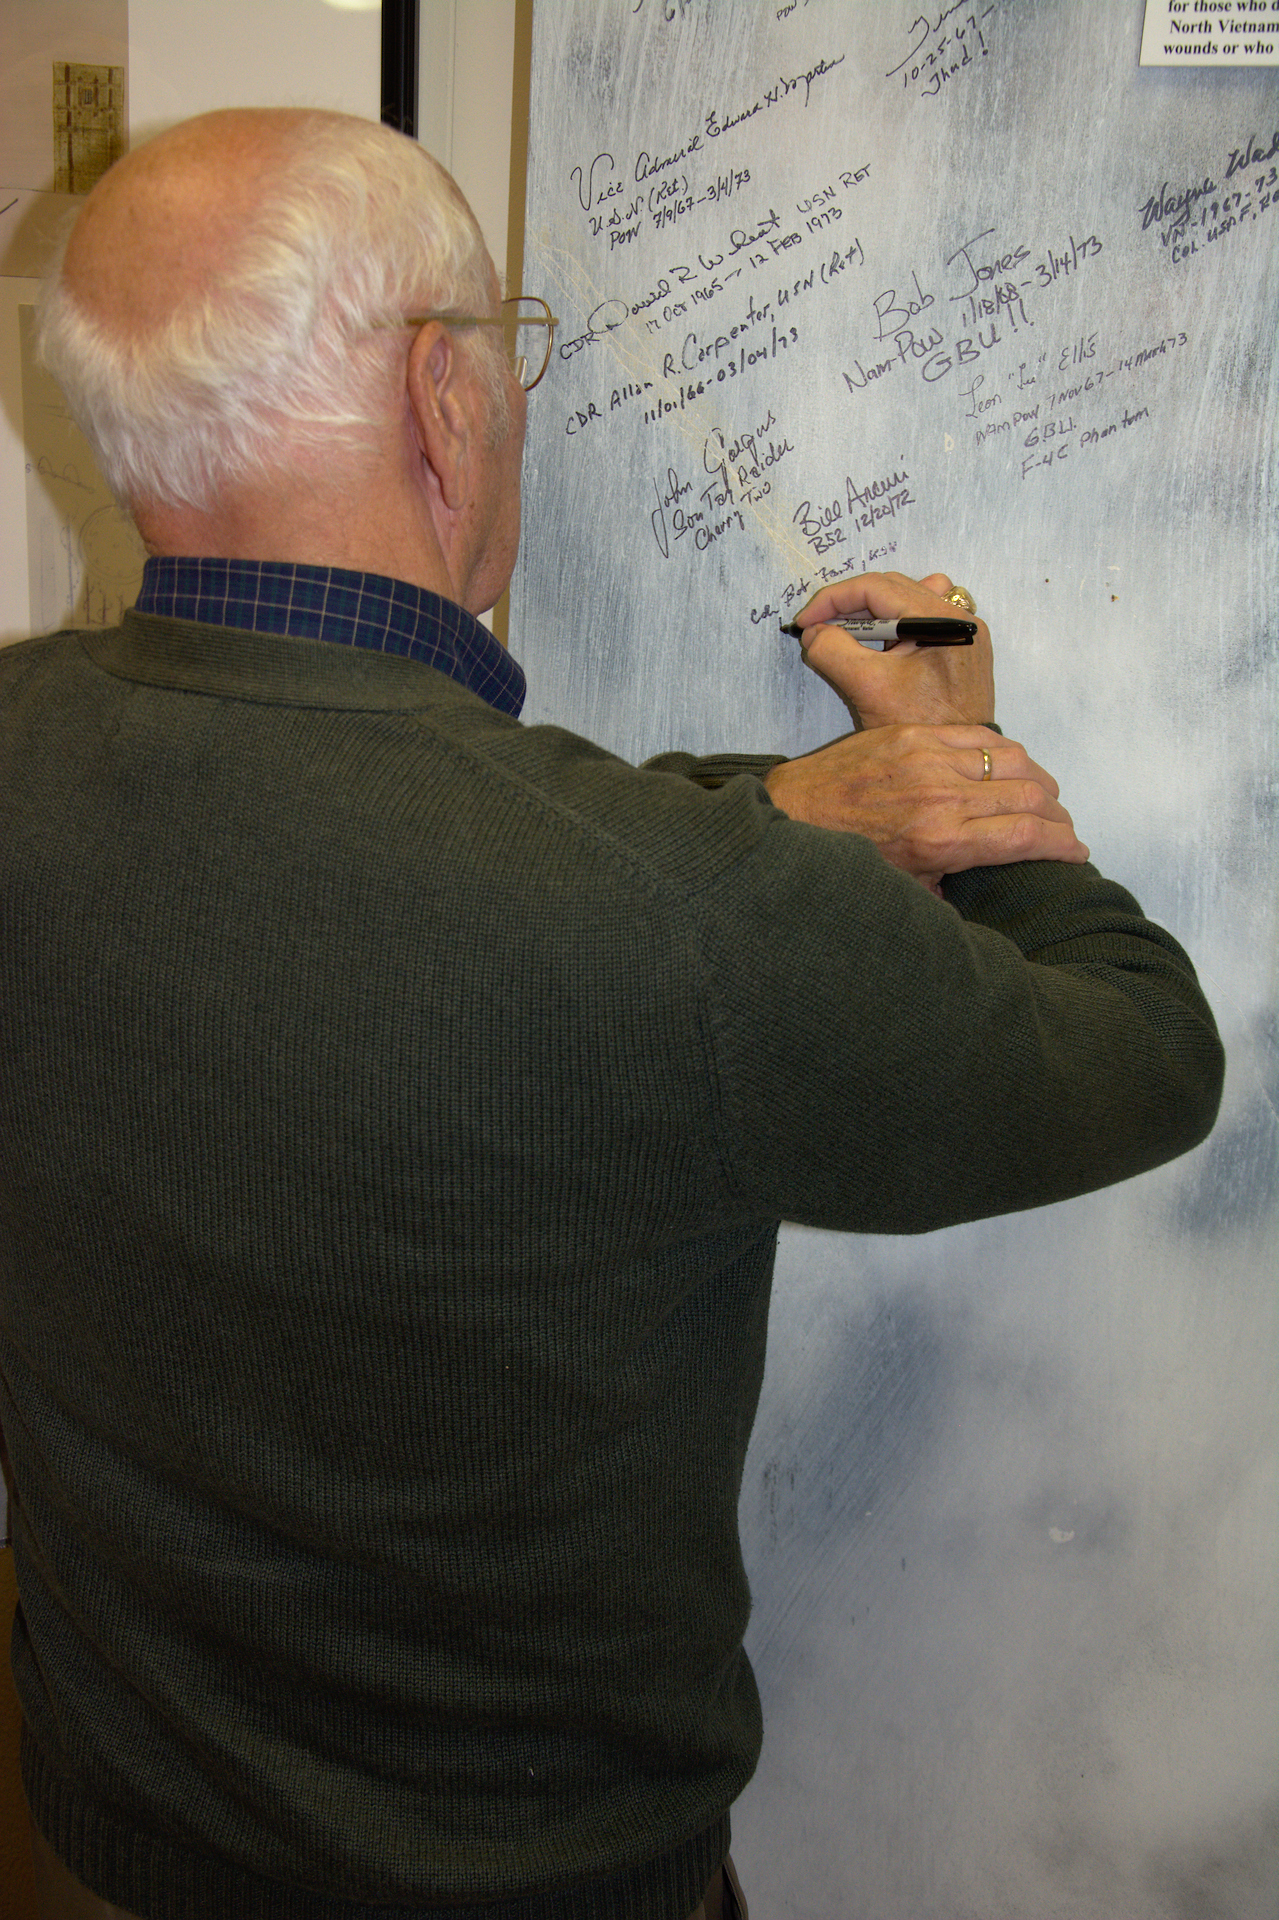 for those who d
North Vietnam
wounds or who
10-25-67-
Thud!
Vice Admiral Edward H. Martin
U.S.N. (Ret.)
POW 7/9/67-3/4/73
CDR David R. Wheat USN RET
17 Oct 1965 - 12 FEB 1973
CDR Allan R. Carpenter, USN (Ret)
11/01/66-03/04/73
Wayne Wad
VN-1967-73
Col. USAF, Re
Bob Jones
Nam-POW 1/18/68-3/14/73
GBU!!
Leon "Lee" Ellis
Nam POW 7 Nov 67-14 Mar 73
G.B.U.
F-4C Phantom
John
Son Tay Raider
Cherry Two
Bill Arcuri
B52 12/20/72
Cdr Bob
Sharpie